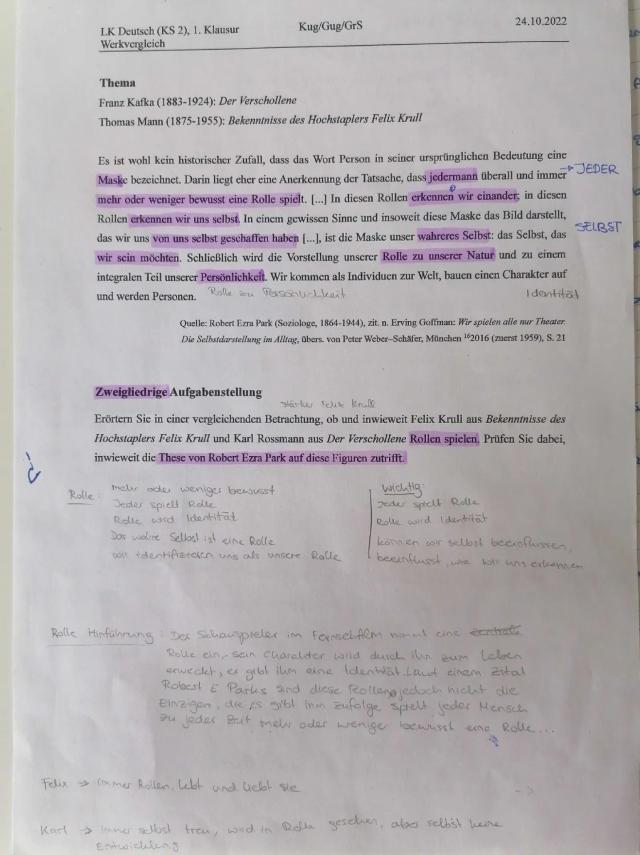 LK Deutsch (KS 2), 1. Klausur Kug/Gug/GrS 24.10.2022
Werkvergleich
Thema
Franz Kafka (1883-1924): Der Verschollene
Thomas Mann (1875-1955): Bekenntnisse des Hochstaplers Felix Krull
Es ist wohl kein historischer Zufall, dass das Wort Person in seiner ursprünglichen Bedeutung eine
Maske bezeichnet. Darin liegt eher eine Anerkennung der Tatsache, dass jedermann überall und immer
JEDER
mehr oder weniger bewusst eine Rolle spielt. [...] In diesen Rollen erkennen wir einander; in diesen
Rollen erkennen wir uns selbst. In einem gewissen Sinne und insoweit diese Maske das Bild darstellt,
SELBST
das wir uns von uns selbst geschaffen haben [...], ist die Maske unser wahreres Selbst: das Selbst, das
wir sein möchten. Schließlich wird die Vorstellung unserer Rolle zu unserer Natur und zu einem
integralen Teil unserer Persönlichkeit. Wir kommen als Individuen zur Welt, bauen einen Charakter auf
und werden Personen. Rolle zu Persönlichkeit Identität
Quelle: Robert Ezra Park (Soziologe, 1864-1944), zit. n. Erving Goffman: Wir spielen alle nur Theater.
Die Selbstdarstellung im Alltag, übers. von Peter Weber-Schäfer, München ¹⁶2016 (zuerst 1959), S. 21
Zweigliedrige Aufgabenstellung
stärker Felix Krull
Erörtern Sie in einer vergleichenden Betrachtung, ob und inwieweit Felix Krull aus Bekenntnisse des
Hochstaplers Felix Krull und Karl Rossmann aus Der Verschollene Rollen spielen. Prüfen Sie dabei,
inwieweit die These von Robert Ezra Park auf diese Figuren zutrifft.
Rolle: mehr oder weniger bewusst
Jeder spielt Rolle
Rolle wird Identität
Das wahre Selbst ist eine Rolle
wir identifizieren uns als unsere Rolle
Wichtig:
Jeder spielt Rolle
Rolle wird Identität
können wir selbst beeinflussen,
beeinflusst, wie wir uns erkennen
Rolle Hinführung: Der Schauspieler im Fernsehfilm nimmt eine
Rolle ein, sein Charakter wird durch ihn zum Leben
erweckt, er gibt ihm eine Identität. Laut einem Zitat
Robert E Parks sind diese Rollen jedoch nicht die
Einzigen, die es gibt. Ihm zufolge spielt jeder Mensch
zu jeder Zeit mehr oder weniger bewusst eine Rolle...
Felix → immer Rollen, lebt und liebt sie
Karl → immer selbst treu, wird in Rolle gesehen, aber selbst keine
Entwicklung